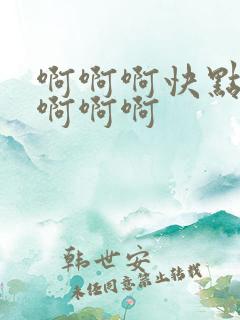 啊啊啊快點
啊啊啊
韩世安
未经同意禁止转载